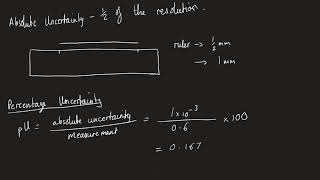 Absolute Uncertainty - 1/2 of the resolution.
ruler → 1/2 mm
→ 1 mm
Percentage Uncertainty
pU = absolute uncertainty / measurement = 1×10⁻³ / 0.6 × 100
= 0.167